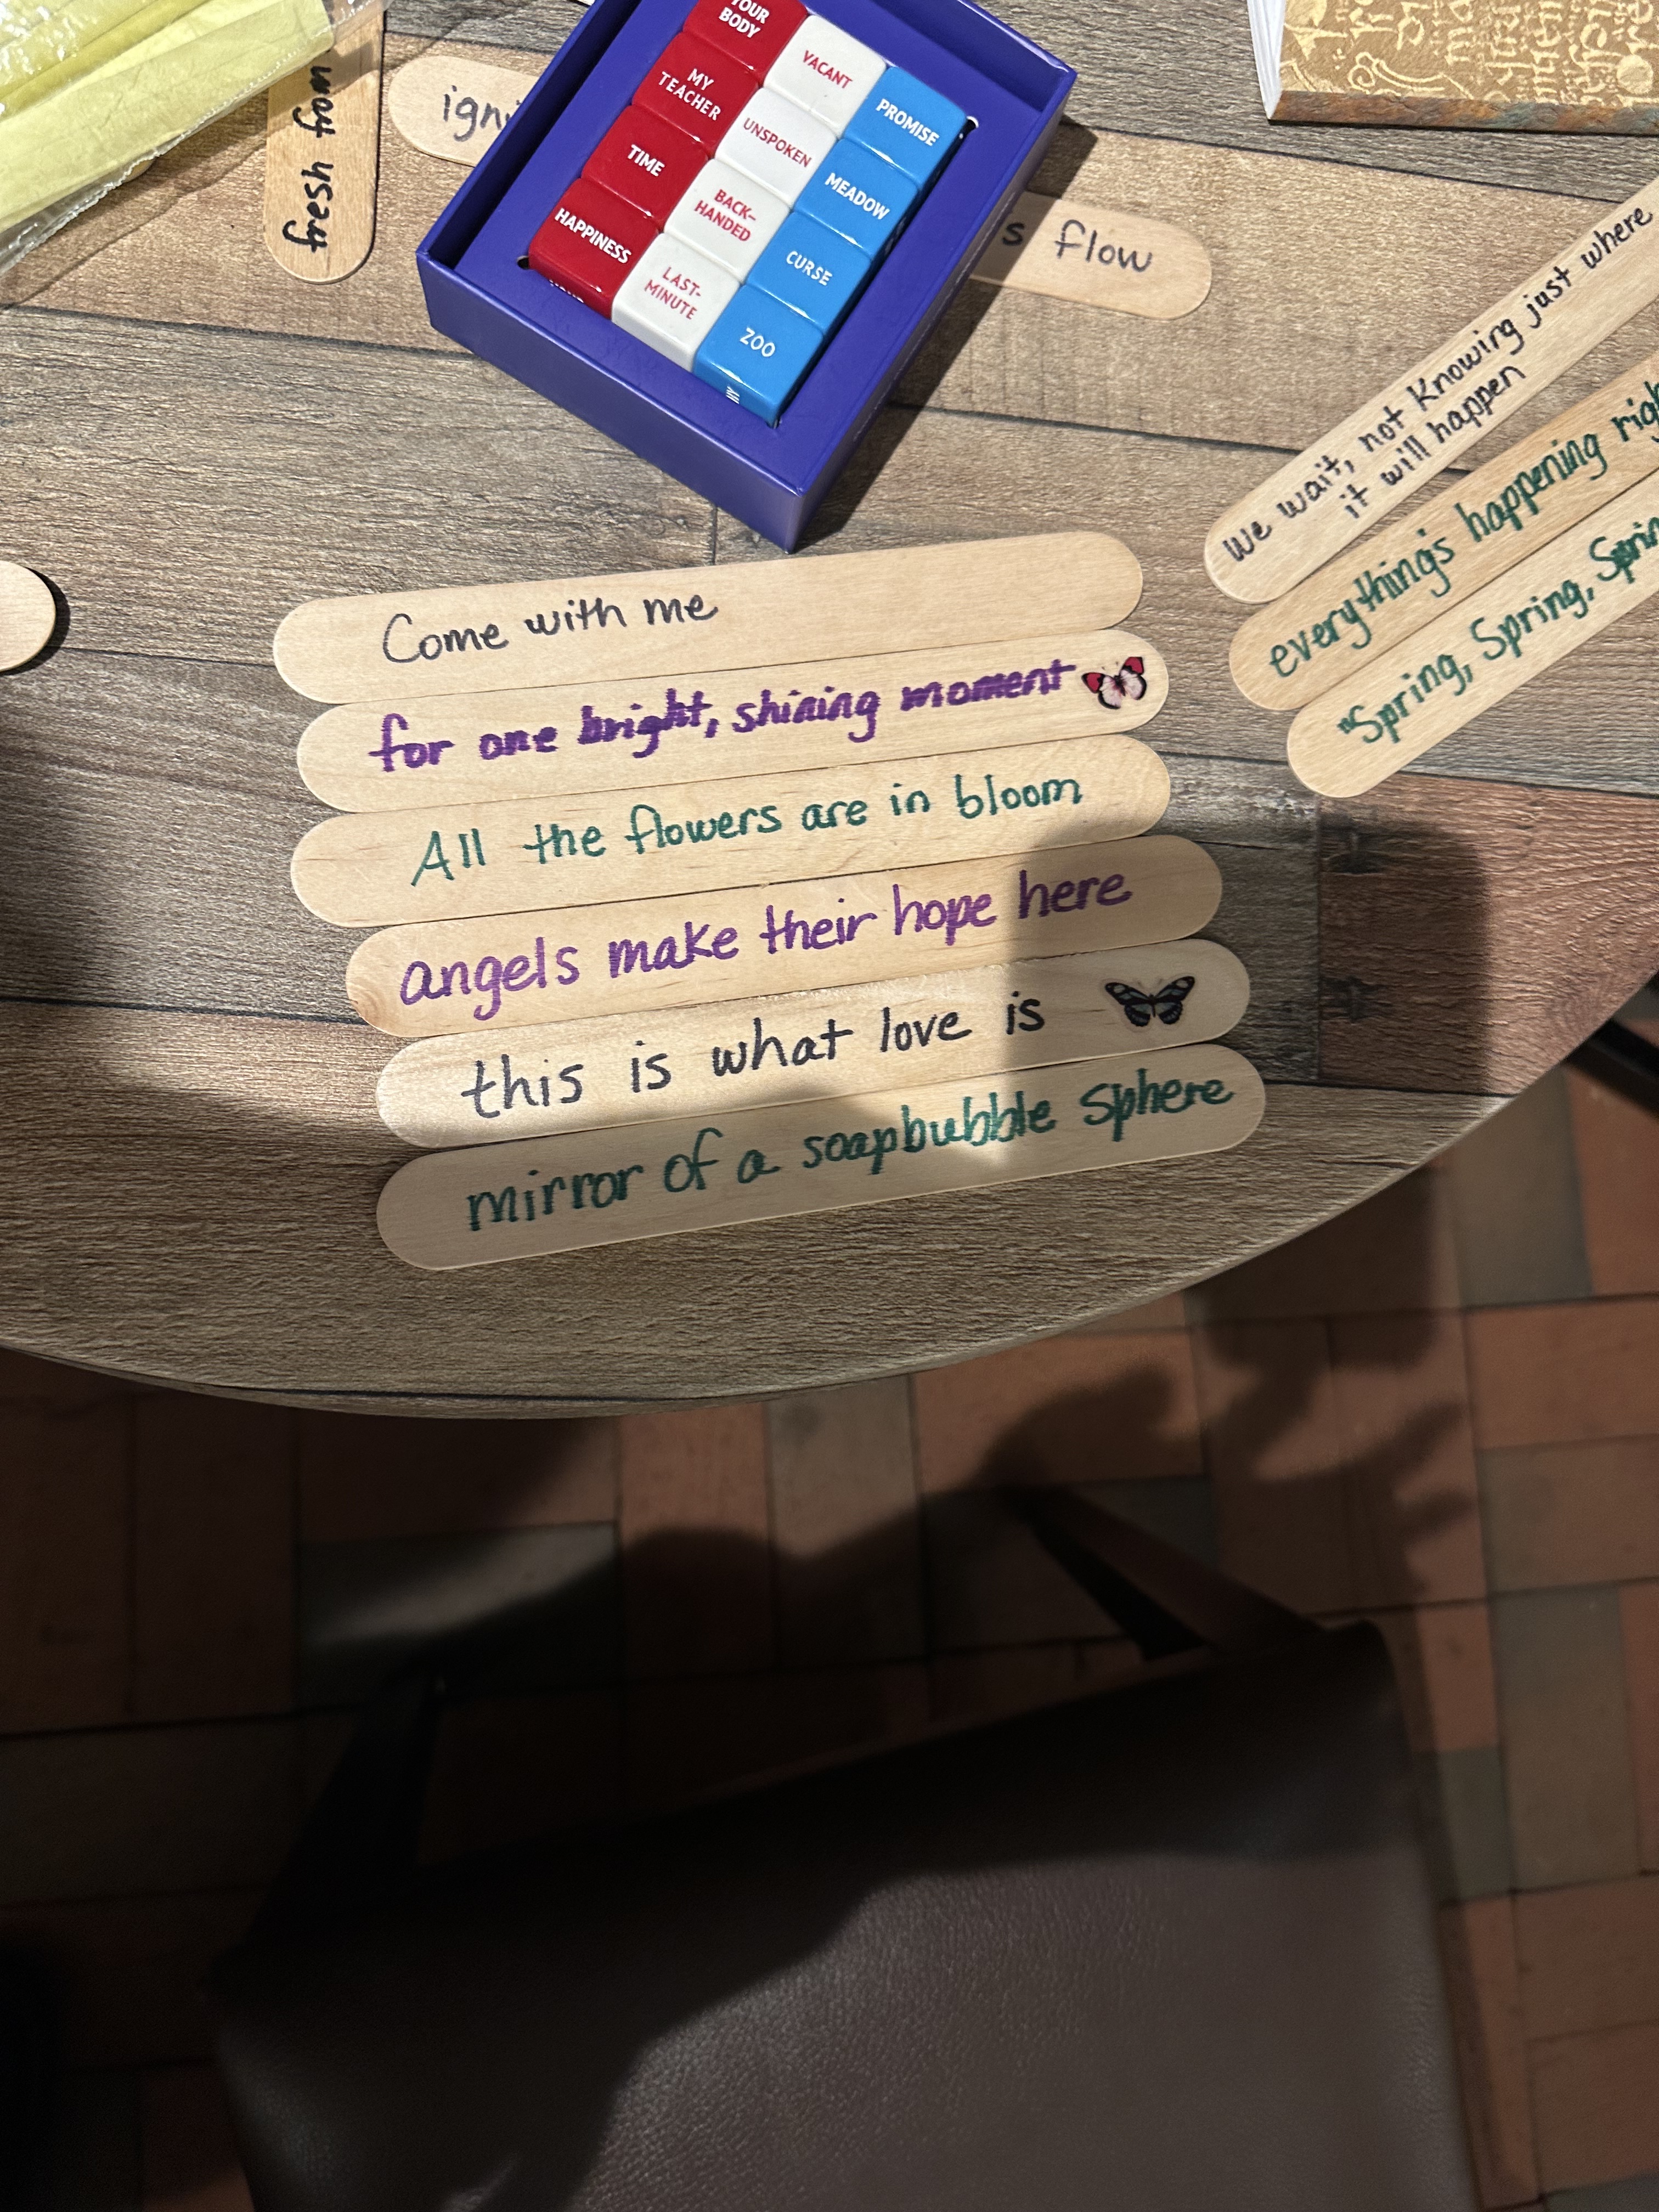 YOUR
BODY
VACANT
PROMISE
MY
TEACHER
UNSPOKEN
MEADOW
TIME
BACK-
HANDED
CURSE
HAPPINESS
LAST-
MINUTE
ZOO
fresh
s flow
We wait, not knowing just where
it will happen
everything's happening
"Spring, Spring,
Come with me
for one bright, shining moment
All the flowers are in bloom
angels make their hope here
this is what love is
mirror of a soapbubble sphere